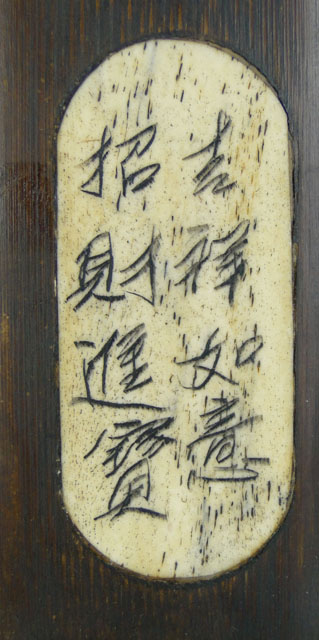 吉祥如意
招財進寳